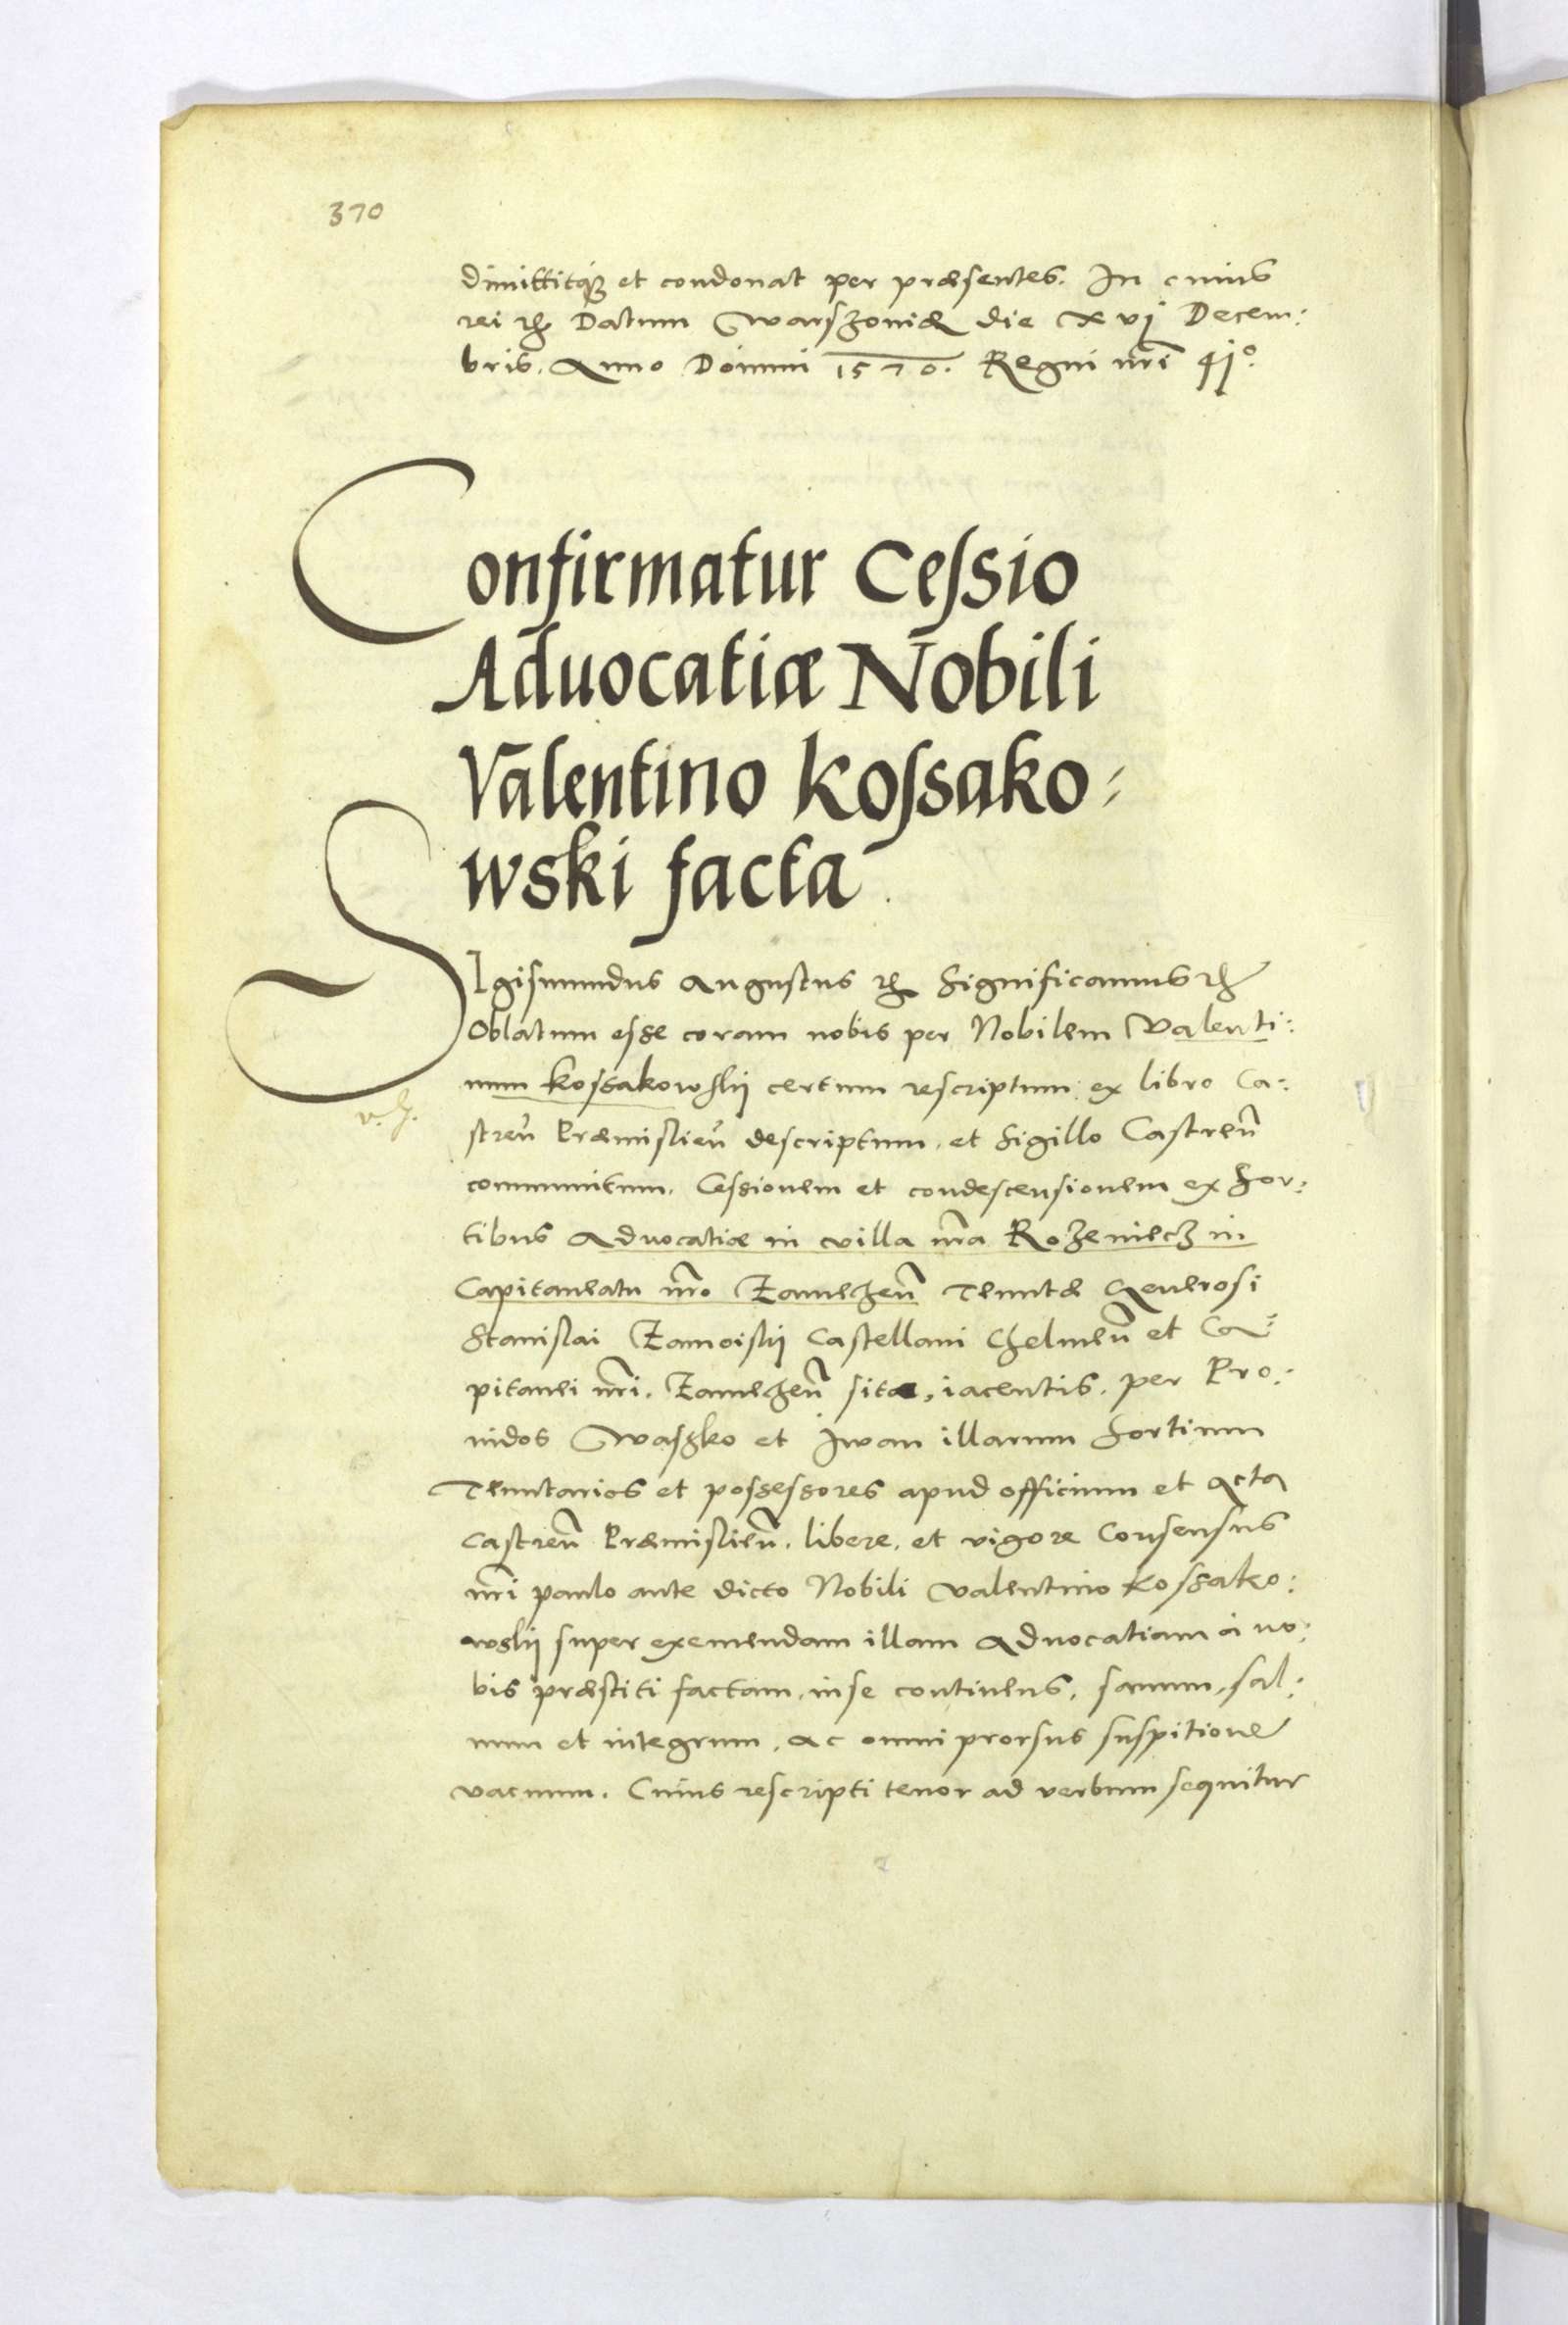 370
dimittitque et condonat per præsentes. In cuius
rei etc Datum Warszouiæ die xvj Decem:
bris. Anno Domini 1570. Regni nri 41º.
Confirmatur Cessio
Aduocatiæ Nobili
Valentino Kossako:
wski facta
SIgismundus Augustus etc Significamus etc
Oblatum esse coram nobis per Nobilem Valenti:
num Kossakowskij certum rescriptum ex libro Ca:
stren Præmislien descriptum, et sigillo Castren
communitum. Cessionem et condescensionem ex Sor:
tibus Aduocatiæ in villa nra Rozeniecz in
Capitaneatu nro Zamechen Tenutæ Generosi
Stanislai Zamoiskij Castellani Chelmen et Ca:
pitanei nri. Zamechen sitæ, iacentis. per Pro:
uidos Waszko et Jwan illarum Sortium
Tenutarios et possessores apud officium et Acta
Castren Præmislien. libere, et vigore Consensus
nri paulo ante dicto Nobili Valentino Kossako:
wskij super exemendam illam Aduocatiam à no:
bis præstiti factam, in se continens, sanum, sal:
uum et integrum, ac omni prorsus suspitione
vacuum. Cuius rescripti tenor ad verbum sequitur